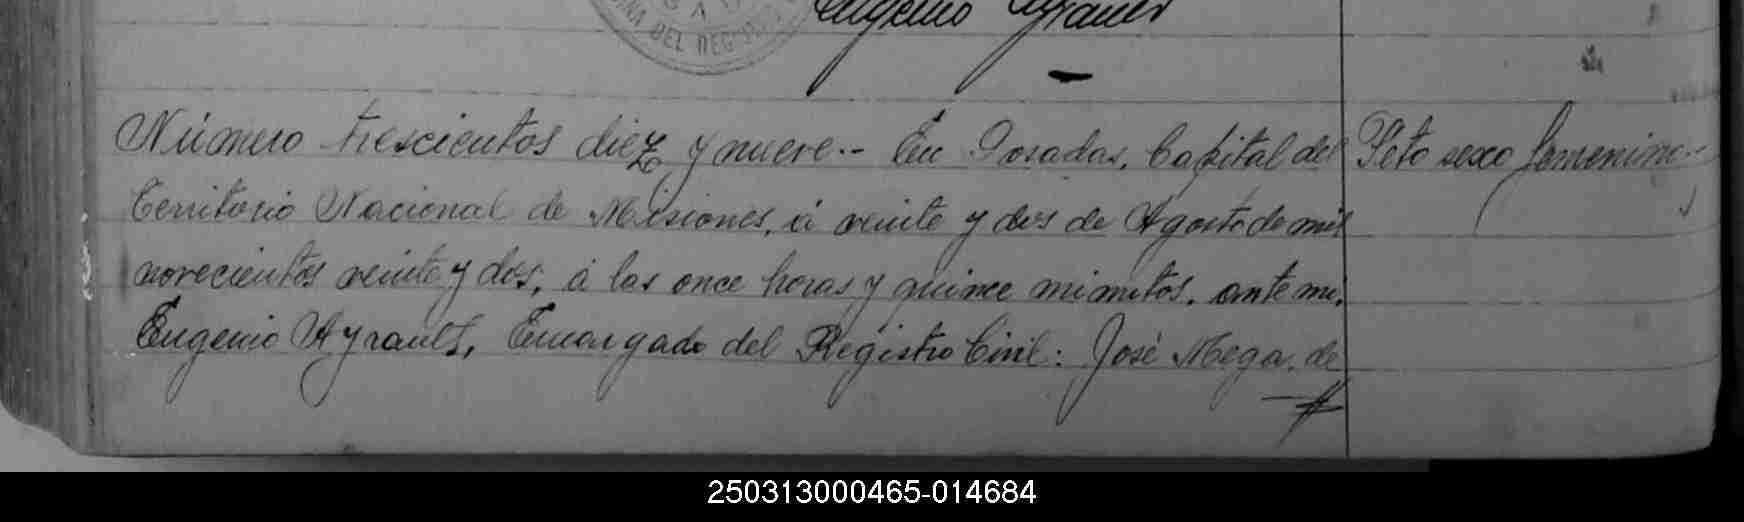 DEL REGIS
Eugenio Ayrault
Número trescientos diez y nueve.- En Posadas, Capital del
Feto sexo femenino.-
Territorio Nacional de Misiones, á veinte y dos de Agosto de mil
novecientos veinte y dos, á las once horas y quince minutos, ante mí,
Eugenio Ayrault, Encargado del Registro Civil: José Mega, de
250313000465-014684